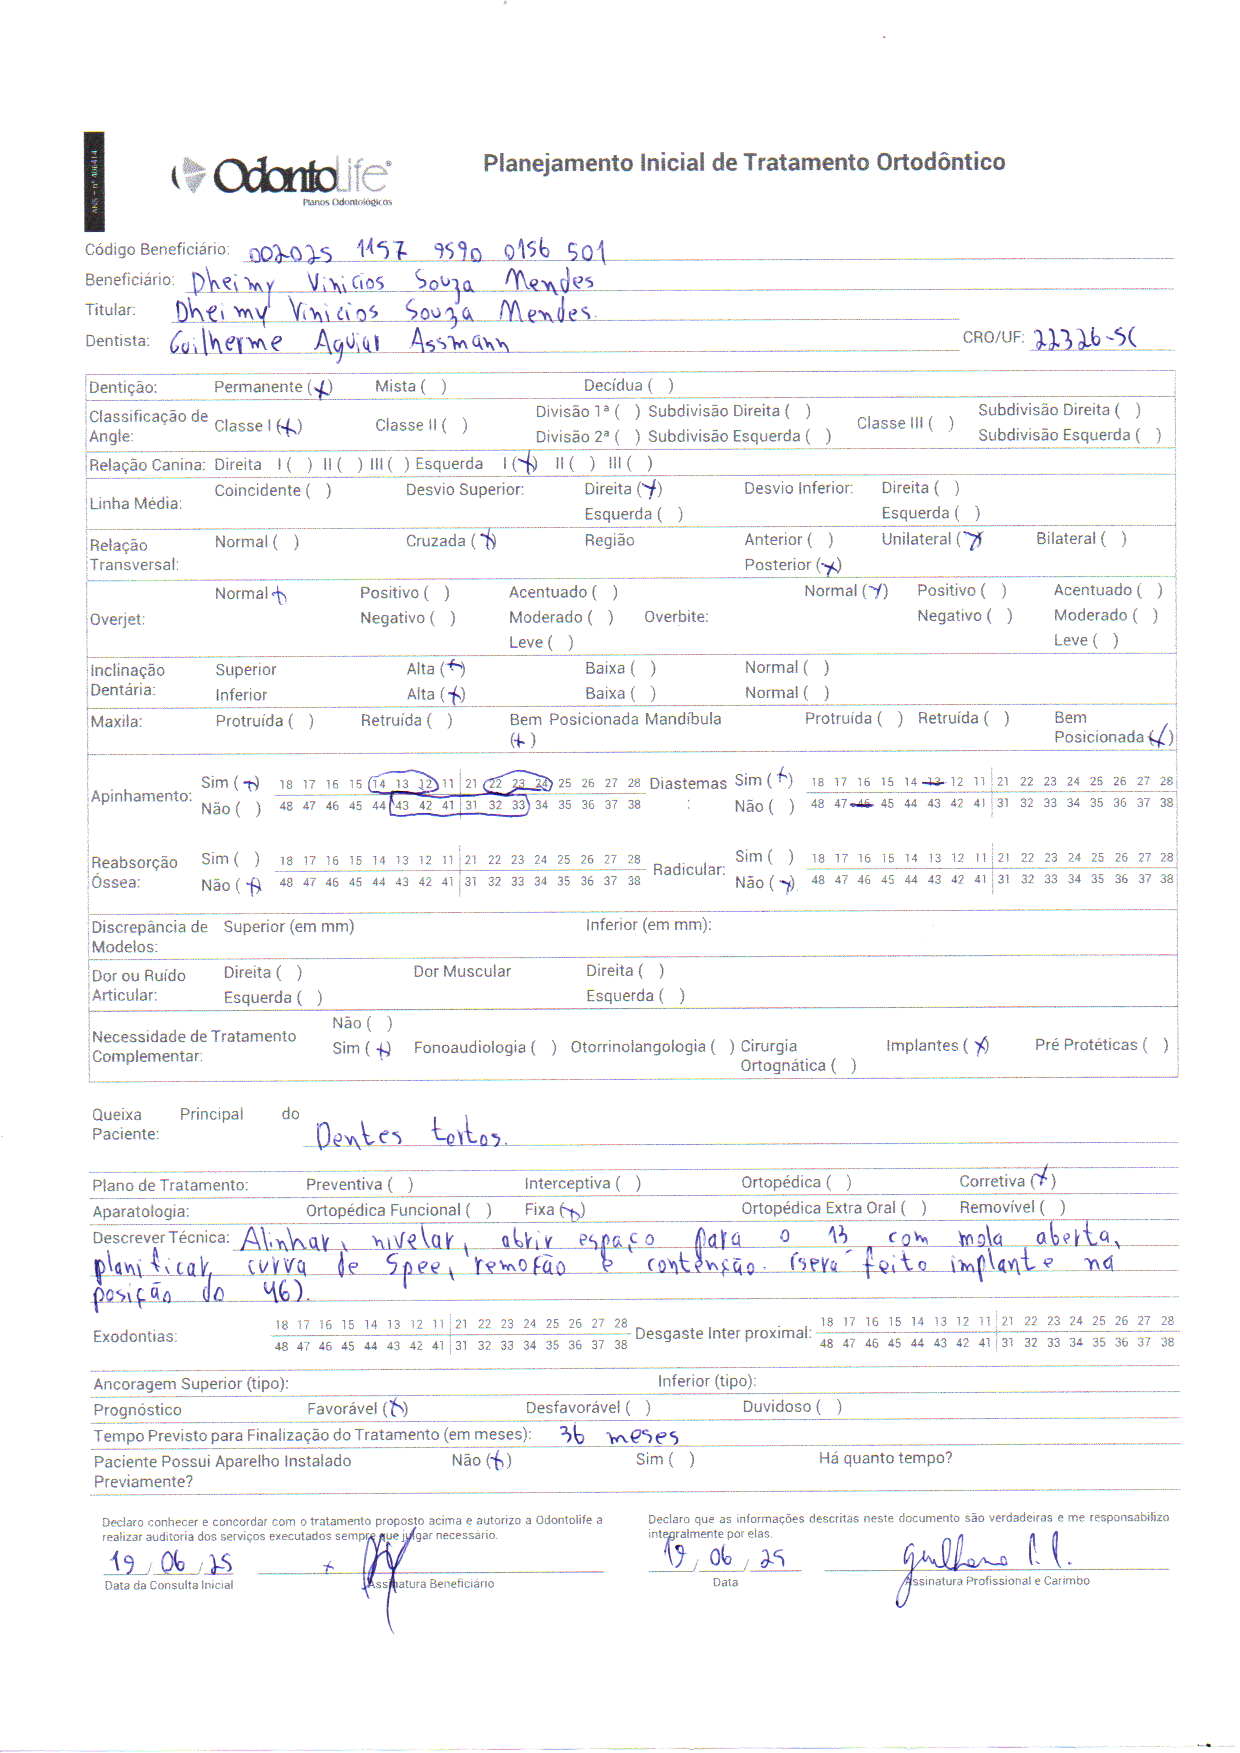 ANS - nº 406414
OdontoLife®
Planos Odontológicos
Planejamento Inicial de Tratamento Ortodôntico
Código Beneficiário: 002025 1157 9590 0156 501
Beneficiário: Dheimy Vinicios Souza Mendes
Titular: Dheimy Vinicios Souza Mendes
Dentista: Guilherme Aguiar Assmann CRO/UF: 22326-SC
Dentição: Permanente (x) Mista ( ) Decídua ( )
Classificação de Angle: Classe I (x) Classe II ( ) Divisão 1ª ( ) Subdivisão Direita ( ) Divisão 2ª ( ) Subdivisão Esquerda ( ) Classe III ( ) Subdivisão Direita ( ) Subdivisão Esquerda ( )
Relação Canina: Direita I ( ) II ( ) III ( ) Esquerda I (x) II ( ) III ( )
Linha Média: Coincidente ( ) Desvio Superior: Direita (x) Esquerda ( ) Desvio Inferior: Direita ( ) Esquerda ( )
Relação Transversal: Normal ( ) Cruzada (x) Região Anterior ( ) Posterior (x) Unilateral (x) Bilateral ( )
Overjet: Normal x Positivo ( ) Negativo ( ) Acentuado ( ) Moderado ( ) Leve ( ) Overbite: Normal (x) Positivo ( ) Negativo ( ) Acentuado ( ) Moderado ( ) Leve ( )
Inclinação Dentária: Superior Alta (x) Baixa ( ) Normal ( )
Inferior Alta (x) Baixa ( ) Normal ( )
Maxila: Protruída ( ) Retruída ( ) Bem Posicionada (x) Mandíbula Protruída ( ) Retruída ( ) Bem Posicionada (x)
Apinhamento: Sim (x) 18 17 16 15 14 13 12 11 21 22 23 24 25 26 27 28 Diastemas: Sim (x) 18 17 16 15 14 13 12 11 21 22 23 24 25 26 27 28
Não ( ) 48 47 46 45 44 43 42 41 31 32 33 34 35 36 37 38 Não ( ) 48 47 46 45 44 43 42 41 31 32 33 34 35 36 37 38
Reabsorção Óssea: Sim ( ) 18 17 16 15 14 13 12 11 21 22 23 24 25 26 27 28 Radicular: Sim ( ) 18 17 16 15 14 13 12 11 21 22 23 24 25 26 27 28
Não (x) 48 47 46 45 44 43 42 41 31 32 33 34 35 36 37 38 Não (x) 48 47 46 45 44 43 42 41 31 32 33 34 35 36 37 38
Discrepância de Modelos: Superior (em mm) Inferior (em mm):
Dor ou Ruído Articular: Direita ( ) Esquerda ( ) Dor Muscular Direita ( ) Esquerda ( )
Necessidade de Tratamento Complementar: Não ( )
Sim (x) Fonoaudiologia ( ) Otorrinolangologia ( ) Cirurgia Ortognática ( ) Implantes (x) Pré Protéticas ( )
Queixa Principal do Paciente: Dentes tortos.
Plano de Tratamento: Preventiva ( ) Interceptiva ( ) Ortopédica ( ) Corretiva (x)
Aparatologia: Ortopédica Funcional ( ) Fixa (x) Ortopédica Extra Oral ( ) Removível ( )
Descrever Técnica: Alinhar, nivelar, abrir espaço para o 13 com mola aberta,
planificar curva de Spee, remoção e contenção. (será feito implante na
posição do 46).
Exodontias: 18 17 16 15 14 13 12 11 21 22 23 24 25 26 27 28 Desgaste Inter proximal: 18 17 16 15 14 13 12 11 21 22 23 24 25 26 27 28
48 47 46 45 44 43 42 41 31 32 33 34 35 36 37 38 48 47 46 45 44 43 42 41 31 32 33 34 35 36 37 38
Ancoragem Superior (tipo): Inferior (tipo):
Prognóstico Favorável (x) Desfavorável ( ) Duvidoso ( )
Tempo Previsto para Finalização do Tratamento (em meses): 36 meses
Paciente Possui Aparelho Instalado Previamente? Não (x) Sim ( ) Há quanto tempo?
Declaro conhecer e concordar com o tratamento proposto acima e autorizo a Odontolife a
realizar auditoria dos serviços executados sempre que julgar necessário.
Declaro que as informações descritas neste documento são verdadeiras e me responsabilizo
integralmente por elas.
19/06/25 x 19/06/25
Data da Consulta Inicial Assinatura Beneficiário Data Assinatura Profissional e Carimbo